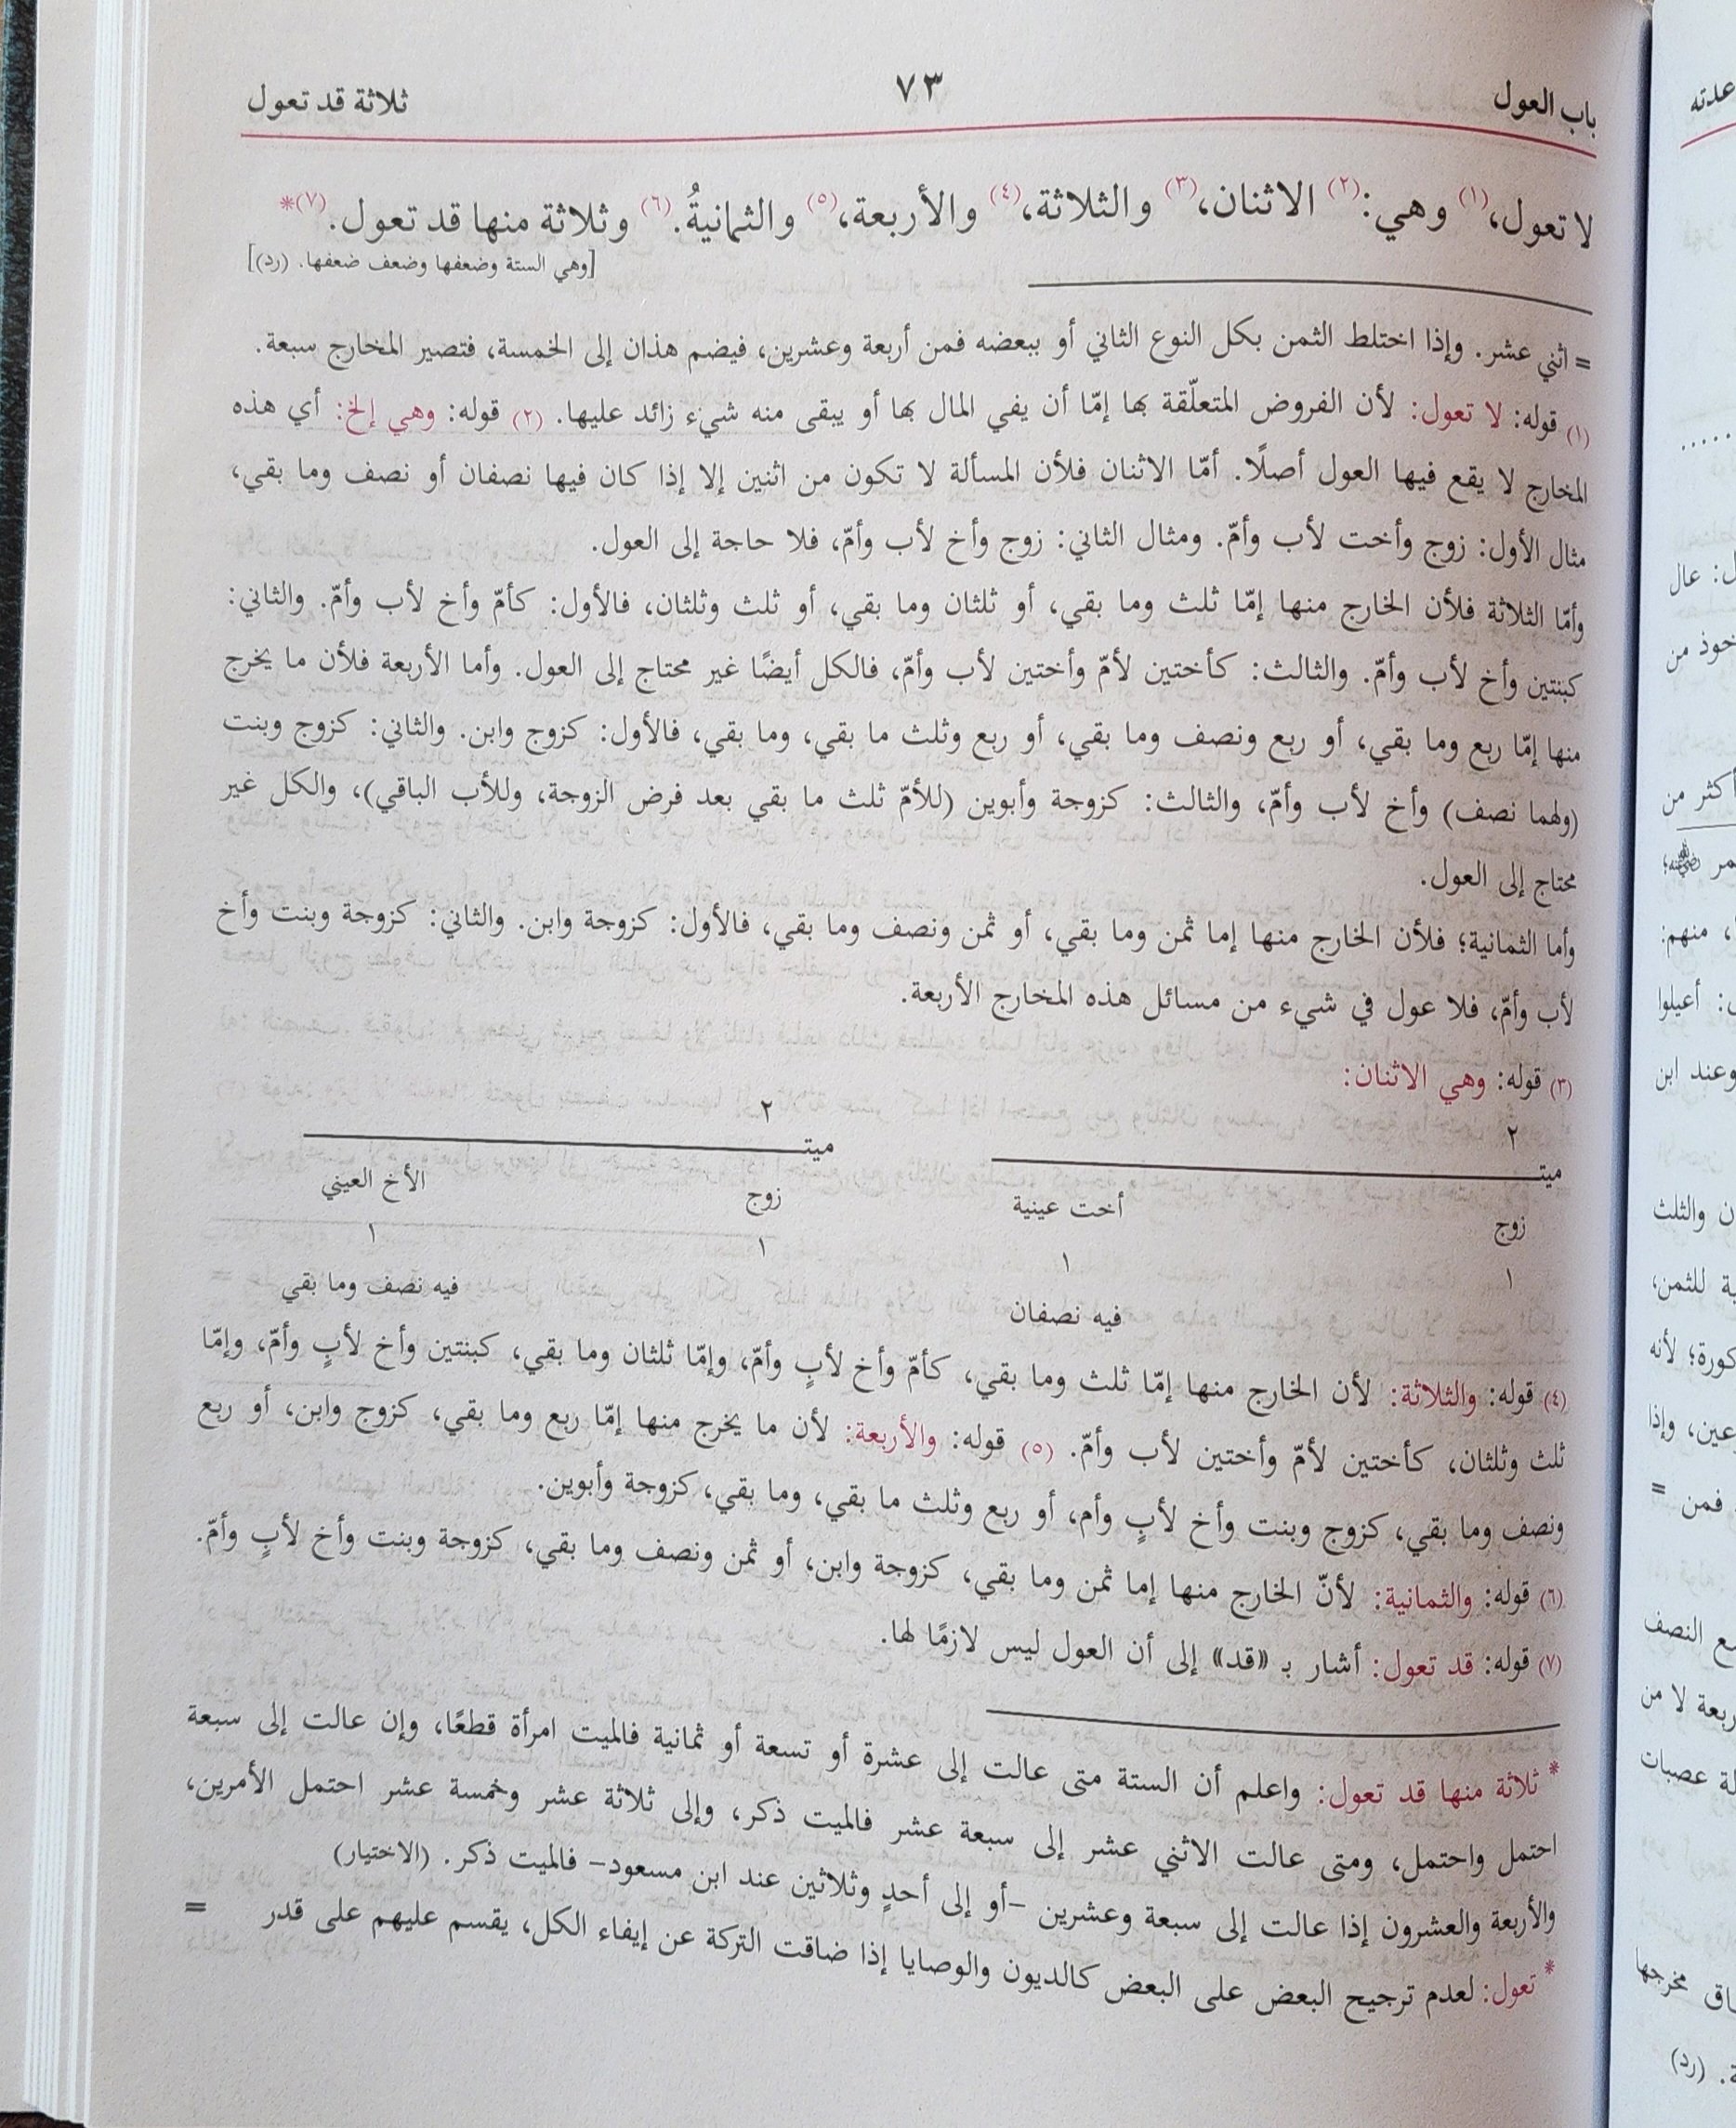 باب العول ٧٣ ثلاثة قد تعول
لا تعول،(١) وهي:(٢) الاثنان،(٣) والثلاثة،(٤) والأربعة،(٥) والثمانيةُ.(٦) وثلاثة منها قد تعول.(٧)*
[وهي الستة وضعفها وضعف ضعفها. (رد)]
= اثني عشر. وإذا اختلط الثمن بكل النوع الثاني أو ببعضه فمن أربعة وعشرين، فيضم هذان إلى الخمسة، فتصير المخارج سبعة.
(١) قوله: لا تعول: لأن الفروض المتعلّقة بها إمّا أن يفي المال بها أو يبقى منه شيء زائد عليها. (٢) قوله: وهي إلخ: أي هذه
المخارج لا يقع فيها العول أصلًا. أمّا الاثنان فلأن المسألة لا تكون من اثنين إلا إذا كان فيها نصفان أو نصف وما بقي،
مثال الأول: زوج وأخت لأب وأمّ. ومثال الثاني: زوج وأخ لأب وأمّ، فلا حاجة إلى العول.
وأمّا الثلاثة فلأن الخارج منها إمّا ثلث وما بقي، أو ثلثان وما بقي، أو ثلث وثلثان، فالأول: كأمّ وأخ لأب وأمّ. والثاني:
كبنتين وأخ لأب وأمّ. والثالث: كأختين لأمّ وأختين لأب وأمّ، فالكل أيضًا غير محتاج إلى العول. وأما الأربعة فلأن ما يخرج
منها إمّا ربع وما بقي، أو ربع ونصف وما بقي، أو ربع وثلث ما بقي، وما بقي، فالأول: كزوج وابن. والثاني: كزوج وبنت
(ولهما نصف) وأخ لأب وأمّ، والثالث: كزوجة وأبوين (للأمّ ثلث ما بقي بعد فرض الزوجة، وللأب الباقي)، والكل غير
محتاج إلى العول.
وأما الثمانية؛ فلأن الخارج منها إما ثمن وما بقي، أو ثمن ونصف وما بقي، فالأول: كزوجة وابن. والثاني: كزوجة وبنت وأخ
لأب وأمّ، فلا عول في شيء من مسائل هذه المخارج الأربعة.
(٣) قوله: وهي الاثنان:
٢ ٢
ميت ميت
زوج أخت عينية زوج الأخ العيني
١ ١ ١ ١
فيه نصفان فيه نصف وما بقي
(٤) قوله: والثلاثة: لأن الخارج منها إمّا ثلث وما بقي، كأمّ وأخ لأبٍ وأمّ، وإمّا ثلثان وما بقي، كبنتين وأخ لأبٍ وأمّ، وإمّا
ثلث وثلثان، كأختين لأمّ وأختين لأب وأمّ. (٥) قوله: والأربعة: لأن ما يخرج منها إمّا ربع وما بقي، كزوج وابن، أو ربع
ونصف وما بقي، كزوج وبنت وأخ لأبٍ وأم، أو ربع وثلث ما بقي، وما بقي، كزوجة وأبوين.
(٦) قوله: والثمانية: لأنّ الخارج منها إما ثمن وما بقي، كزوجة وابن، أو ثمن ونصف وما بقي، كزوجة وبنت وأخ لأبٍ وأمّ.
(٧) قوله: قد تعول: أشار بـ «قد» إلى أن العول ليس لازمًا لها.
* ثلاثة منها قد تعول: واعلم أن الستة متى عالت إلى عشرة أو تسعة أو ثمانية فالميت امرأة قطعًا، وإن عالت إلى سبعة
احتمل واحتمل، ومتى عالت الاثني عشر إلى سبعة عشر فالميت ذكر، وإلى ثلاثة عشر وخمسة عشر احتمل الأمرين،
والأربعة والعشرون إذا عالت إلى سبعة وعشرين -أو إلى أحدٍ وثلاثين عند ابن مسعود- فالميت ذكر. (الاختيار)
* تعول: لعدم ترجيح البعض على البعض كالديون والوصايا إذا ضاقت التركة عن إيفاء الكل، يقسم عليهم على قدر =